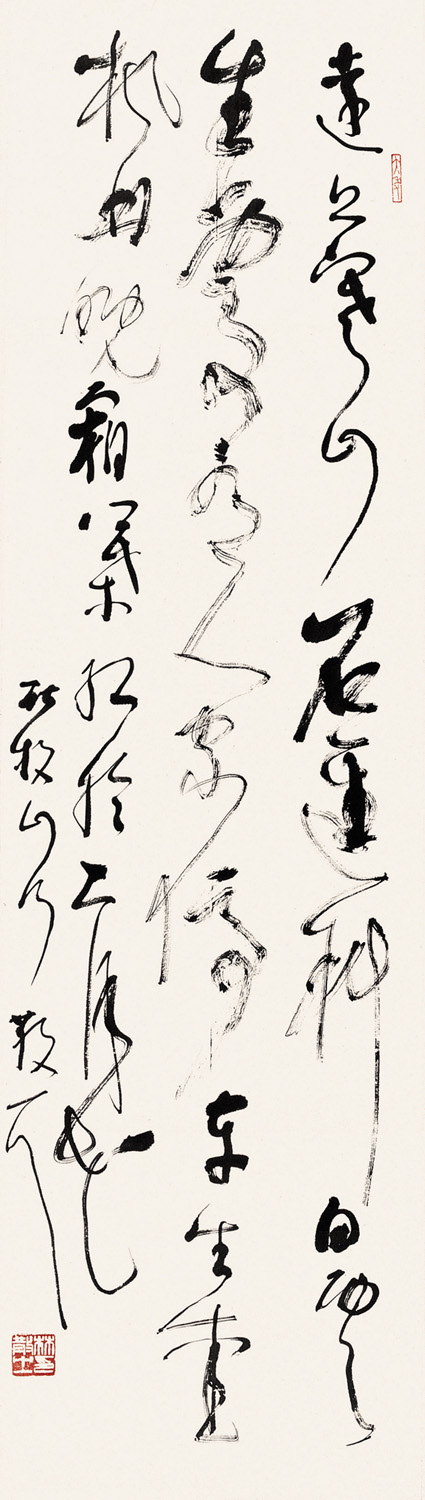 遠上寒山石逕斜白雲
生處有人家停車坐愛
楓林晚霜葉紅於二月花
杜牧山行 散耳